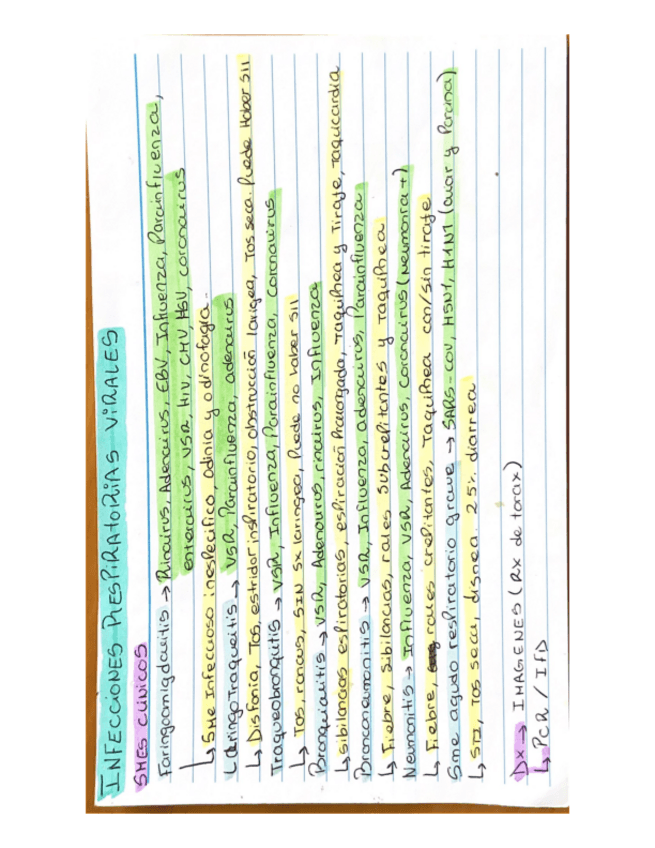 INFECCIONES RESPIRATORIAS VIRALES
SMES CLÍNICOS
Faringoamigdalitis → Rinovirus, Adenovirus, EBV, Influenza, Parainfluenza,
enterovirus, VSR, HIV, CMV, HSV, coronavirus
↳ Sme Infeccioso inespecifico, adinia y odinofagia.
LaringoTraqueitis → VSR, Parainfluenza, adenovirus
↳ Disfonía, Tos, estridor inspiratorio, obstrucción laringea, Tos seca. Puede Haber SII
Traqueobronquitis → VSR, Influenza, Parainfluenza, Coronavirus
↳ Tos, roncus, SIN Sx laringea, Puede no haber SII
Bronquiolitis → VSR, Adenovirus, rinovirus, Influenza
↳ sibilancias espiratorias, espiración Prolongada, Taquipnea y Tiraje, Taquicardia
Bronconeumonitis → VSR, Influenza, adenovirus, Parainfluenza
↳ Fiebre, sibilancias, rales subcrepitantes y Taquipnea
Neumonitis → Influenza, VSR, Adenovirus, coronavirus (Neumonia +)
↳ Fiebre, rales crepitantes, Taquipnea con/sin tiraje
Sme agudo respiratorio grave → SARS-COV, H5N1, H1N1 (aviar y Porcina)
↳ Tos seca, disnea. 25% diarrea
Dx → IMAGENES (Rx de torax)
↳ PCR / IFD